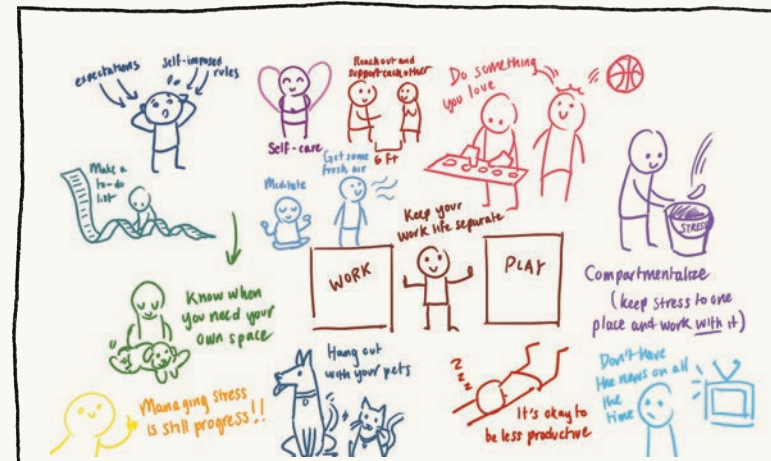 expectations
self-imposed
rules
Self-care
Reach out and
support each other
6 ft
Do something
you love
Make a
to-do
list
Meditate
Get some
fresh air
Keep your
work life separate
WORK
PLAY
STRESS
Compartmentalize
(keep stress to one
place and work with it)
Know when
you need your
own space
Hang out
with your pets
z z z
It's okay to
be less productive
Don't have
the news on all
the
time
Managing stress
is still progress!!